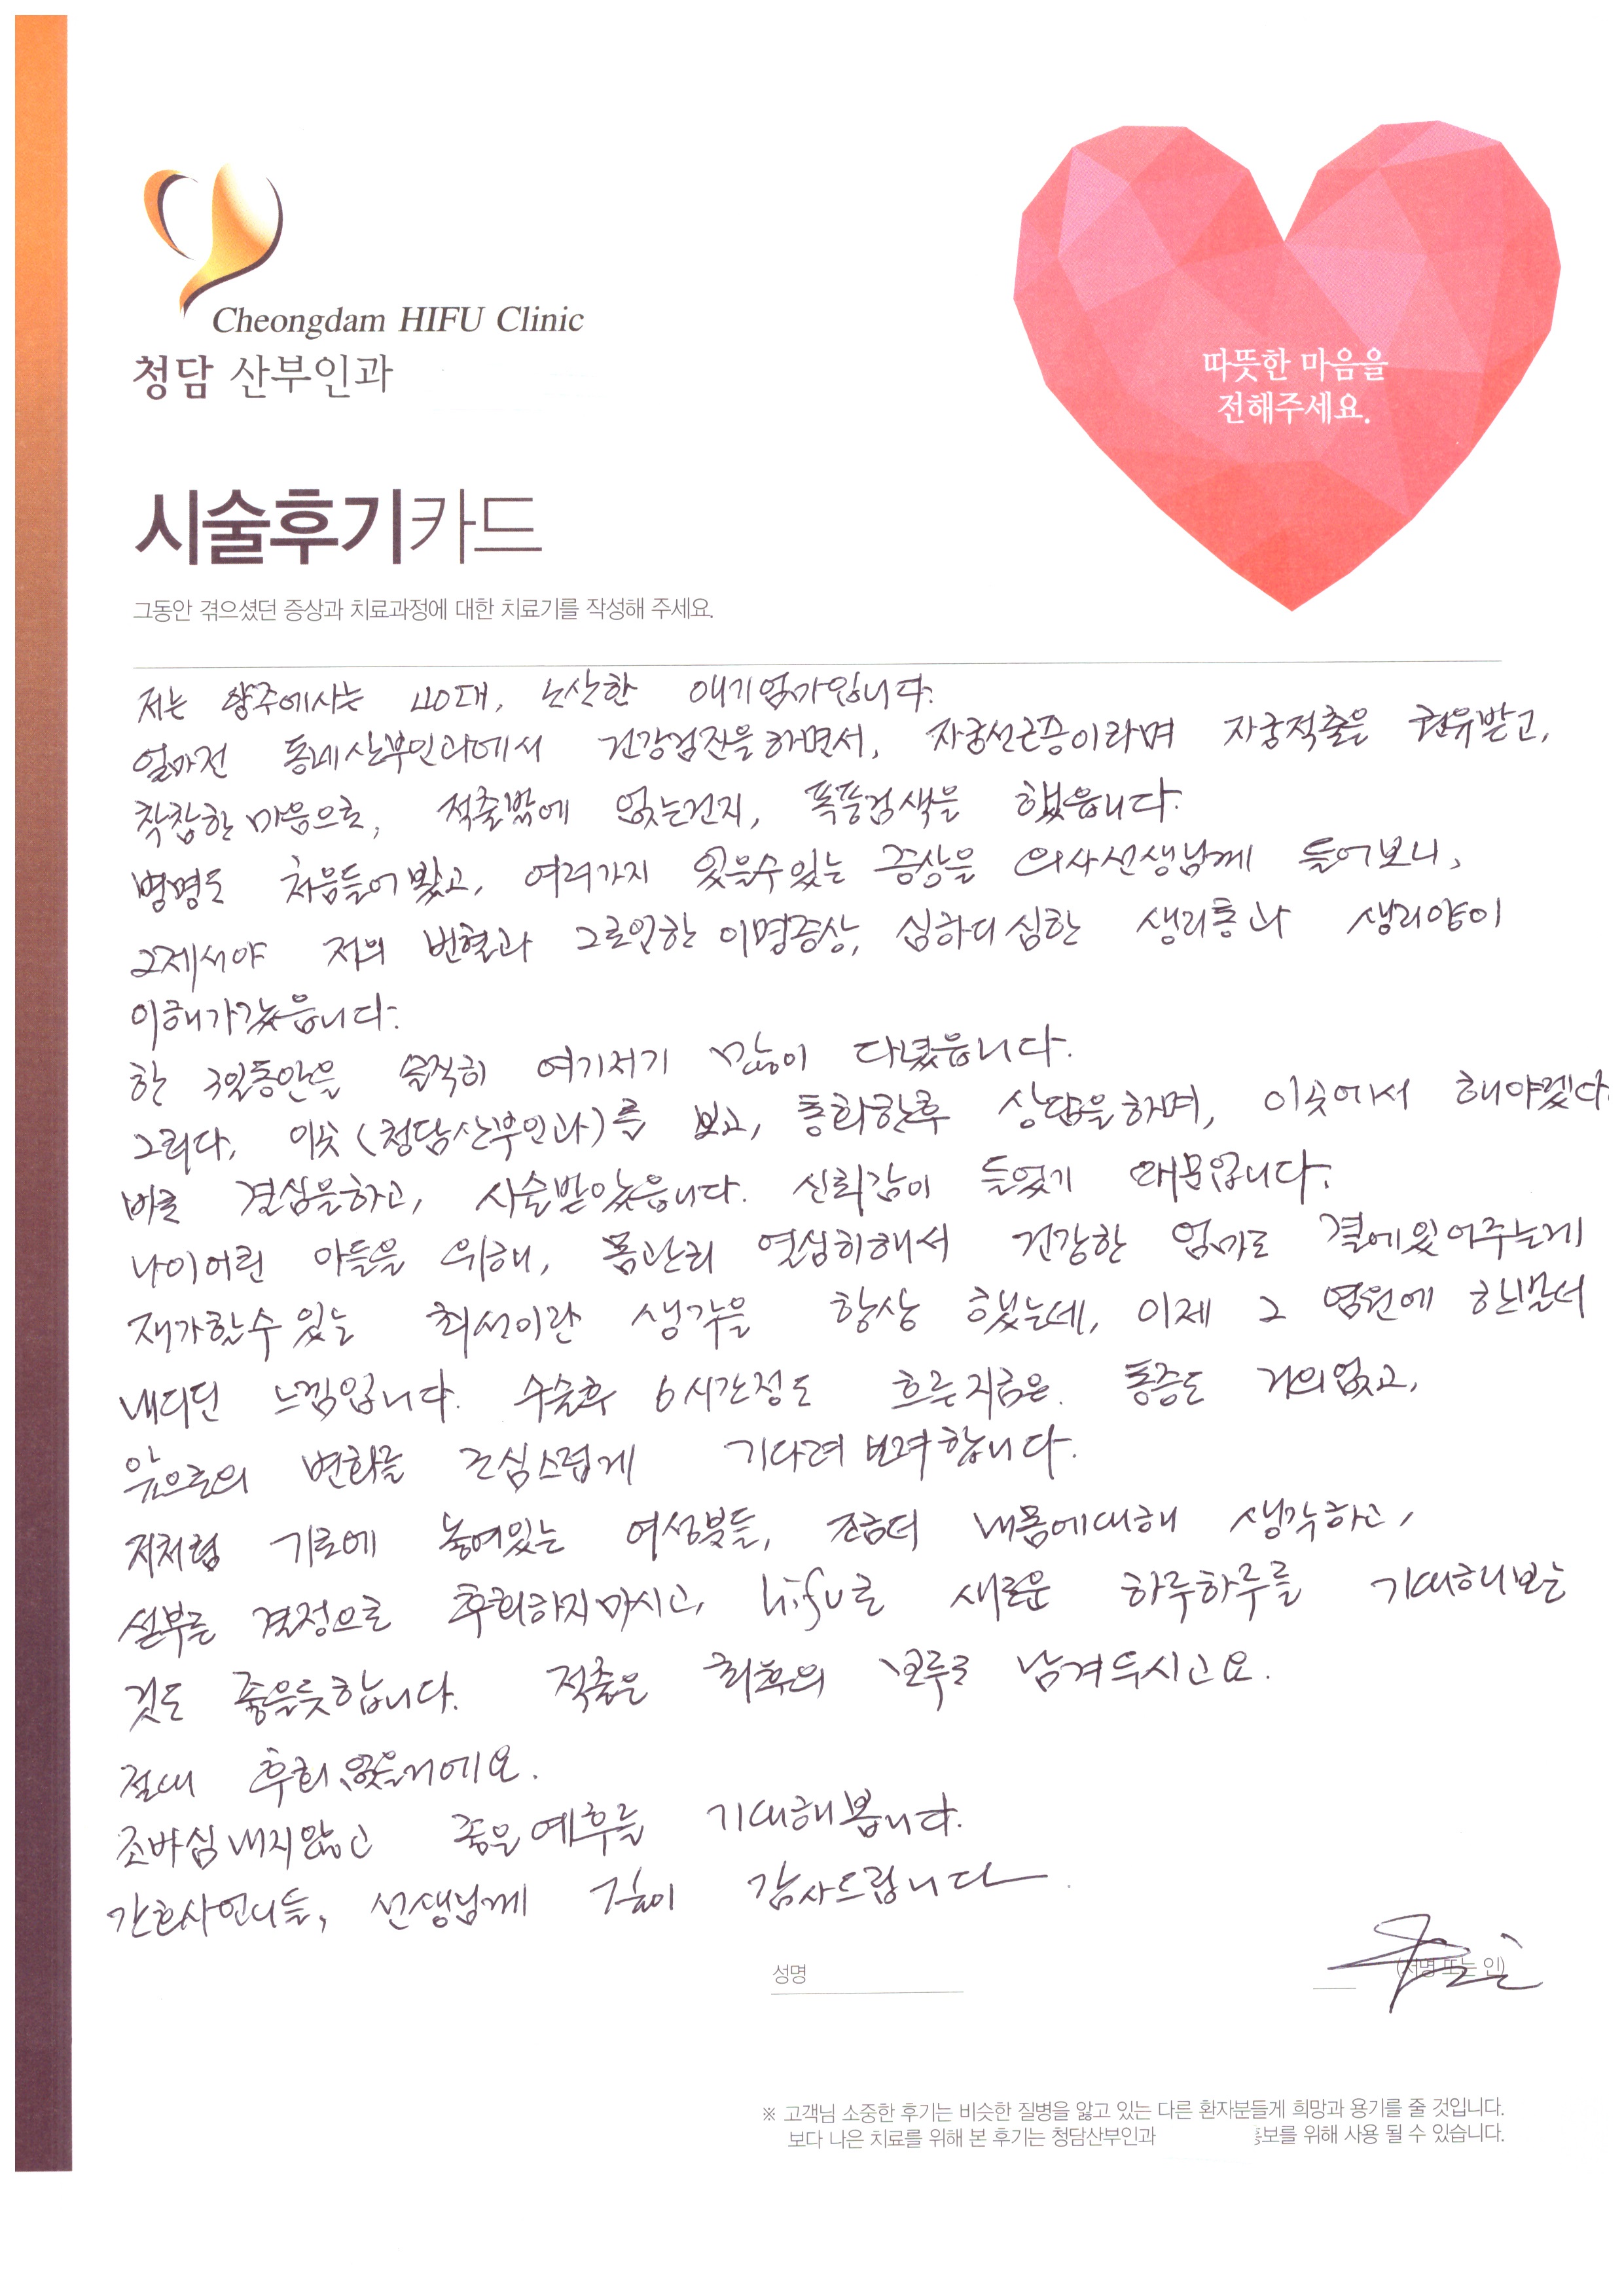 Cheongdam HIFU Clinic
청담 산부인과
따뜻한 마음을
전해주세요.
시술후기카드
그동안 겪으셨던 증상과 치료과정에 대한 치료기를 작성해 주세요.
저는 양주에사는 40대, 노산한 애기엄마입니다.
얼마전 동네산부인과에서 건강검진을하면서, 자궁선근증이라며 자궁적출을 권유받고,
착찹한 마음으로, 적출밖에 없는건지, 폭풍검색을 했읍니다.
병명도 처음들어봤고, 여러가지 있을수있는 증상을 의사선생님께 들어보니,
그제서야 저의 빈혈과 그로인한 이명증상, 심하디심한 생리통과 생리양이
이해가갔읍니다.
한 3일동안을 솔직히 여기저기 많이 다녔읍니다.
그러다, 이곳(청담산부인과)를 보고, 통화한후 상담을하며, 이곳에서 해야겠다
바로 결심을하고, 시술받았읍니다. 신뢰감이 들었기 때문입니다.
나이어린 아들을 위해, 몸관리 열심히해서 건강한 엄마로 곁에있어주는게
재가할수있는 최선이란 생각을 항상 했는데, 이제 그 염원에 한발더
내디딘 느낌입니다. 수술후 6시간정도 흐른지금은. 통증도 거의없고,
앞으로의 변화를 조심스럽게 기다려보려합니다.
저처럼 기로에 놓여있는 여성분들, 조금더 내몸에대해 생각하고,
섣부른 결정으로 후회하지마시고, hifu로 새로운 하루하루를 기대해보는
것도 좋을듯합니다. 적출은 최후의 보루로 남겨두시고요.
절대 후회없을거에요.
조바심내지않고 좋은예후를 기대해봅니다.
간호사언니들, 선생님께 깊이 감사드립니다.
성명 (서명 또는 인)
※ 고객님 소중한 후기는 비슷한 질병을 앓고 있는 다른 환자분들게 희망과 용기를 줄 것입니다.
보다 나은 치료를 위해 본 후기는 청담산부인과 홍보를 위해 사용 될 수 있습니다.